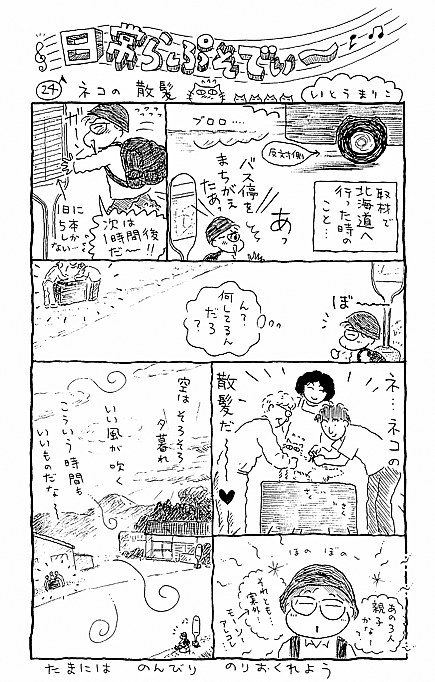 日常らぷそでぃ〜
24 ネコの散髪
いとうまりこ
取材で
北海道へ
行った時の
こと…
ブロロ…
反対側
あっ
バス停を
まちがえ
たぁ
次は
1時間後
だ〜!!
1日に
5本
しか
ない…
ぼ〜
ん?
何してるん
だろ
?
ネ…ネコの
散髪だ〜
さく
さく
ほのぼの
あの3人
親子
かな…
それとも…
空はそろそろ
夕暮れ
いい風が吹く
こういう時間も
いいものだな〜
たまには のんびり のりおくれよう